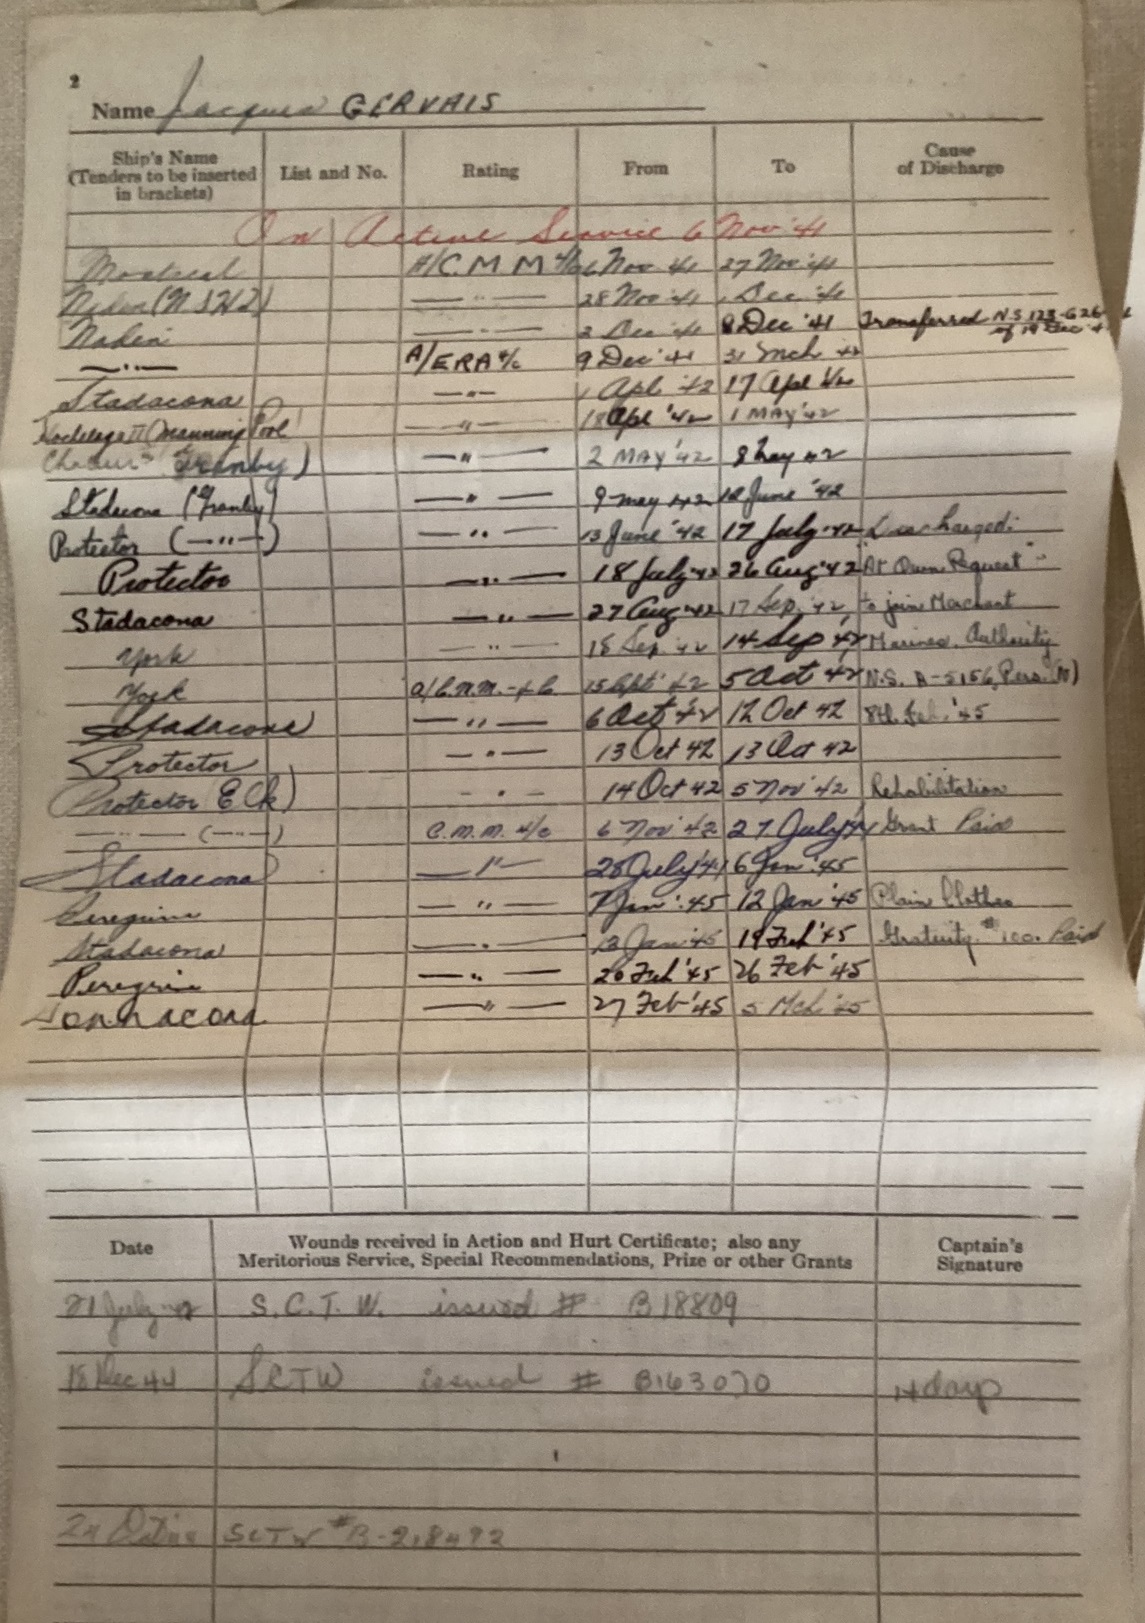 2
Name Jacques GERVAIS
Ship's Name (Tenders to be inserted in brackets) List and No. Rating From To Cause of Discharge
On Active Service 6 Nov '41
Montreal A/C.M.M 4/c 6 Nov 41 27 Nov '41
Naden 28 Nov '41 1 Dec '41
Naden — " — 2 Dec '41 8 Dec '41 Transferred N.S. 123-G-26
of 19 Dec 4
— " — A/ERA 4/c 9 Dec '41 31 Mch 42
Stadacona — " — 1 Apl '42 17 Apl '42
Hochelaga II (Manning Pool — " — 18 Apl '42 1 MAY '42
(Granby) — " — 2 MAY '42 8 May 42
Stadacona (Granby) — " — 9 May 42 12 June '42
Protector (— " —) — " — 13 June '42 17 July '42 Discharged:
Protector — " — 18 July '42 26 Aug '42 "At Own Request"
Stadacona — " — 27 Aug '42 17 Sep. '42 to join Merchant
York — " — 18 Sep. '42 14 Sep '42 Marines. Authority
York A/C.M.M. - 4/c 15 Sept '42 5 Oct 42 N.S. A-5156, Pers. (N)
Stadacona — " — 6 Oct '42 12 Oct 42 8th. Feb. '45
Protector — " — 13 Oct 42 13 Oct 42
Protector — " — 14 Oct 42 5 Nov '42 Rehabilitation
— " — (— " —) C.M.M. 4/c 6 Nov '42 27 July '44 Grant Paid
Stadacona — " — 28 July '44 6 Jan '45
Peregrine — " — 7 Jan '45 12 Jan '45 Plain Clothes
Stadacona — " — 13 Jan '45 19 Feb '45 Gratuity $100. Paid
Peregrine — " — 20 Feb '45 26 Feb '45
— " — 27 Feb '45 5 Mch '45
Date Wounds received in Action and Hurt Certificate; also any Meritorious Service, Special Recommendations, Prize or other Grants Captain's Signature
21 July 42 S.C.T.W. issued # B18809
18 Dec 44 SCTW issued # B163070 14 days
SCTW # B-218492